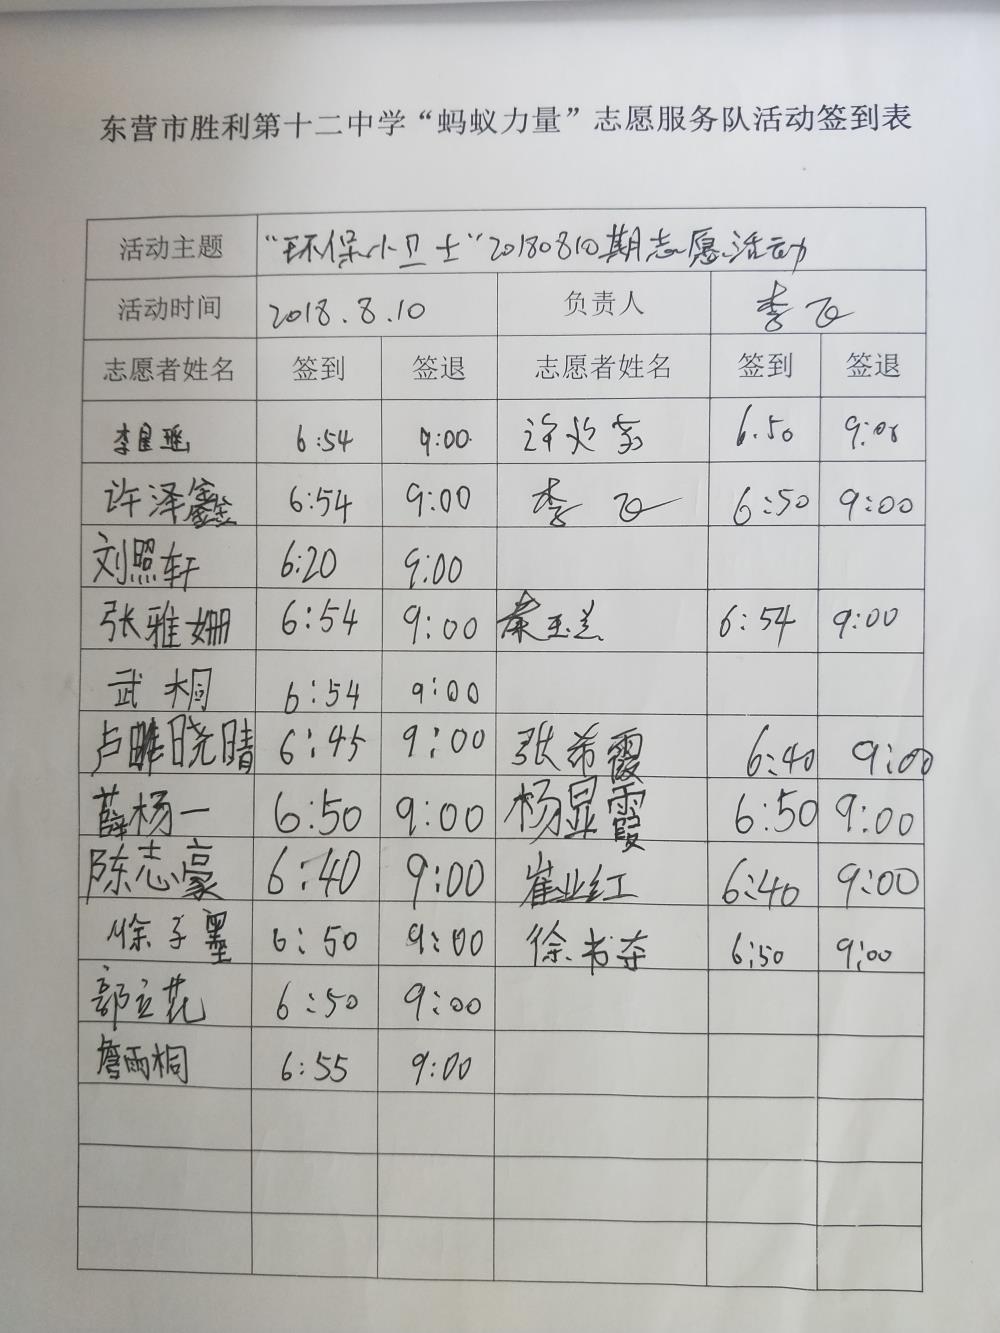 东营市胜利第十二中学“蚂蚁力量”志愿服务队活动签到表
活动主题 “环保小卫士”20180810期志愿活动
活动时间 2018.8.10 负责人 李飞
志愿者姓名 签到 签退 志愿者姓名 签到 签退
6:54 9:00 6:50 9:00
许泽鑫 6:54 9:00 李飞 6:50 9:00
刘照轩 6:20 9:00
张雅姗 6:54 9:00 秦玉兰 6:54 9:00
武桐 6:54 9:00
卢 晓晴 6:45 9:00 张希霞 6:40 9:00
薛杨一 6:50 9:00 杨显霞 6:50 9:00
陈志豪 6:40 9:00 崔业红 6:40 9:00
徐子墨 6:50 9:00 徐书 6:50 9:00
郭立花 6:50 9:00
詹雨桐 6:55 9:00